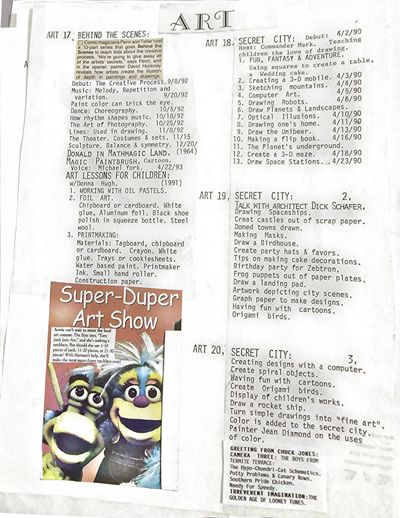 ART
ART 17, BEHIND THE SCENES:
Comic magicians Penn and Teller host
a 10-part series that goes Behind the
Scenes to teach kids about the creative
process. "We're going to give away
the artists' secrets," says Penn, and
in the opener, painter David Hockney
reveals how artists create the illusion
of depth in paintings and drawings.
Debut: The Creative Process.9/8/92
Music: Melody, Repetition and
variation. 9/20/92
Paint color can trick the eye.
Dance: Choreography. 10/5/92
How rhythm shapes music. 10/18/92
The Art of Photography. 10/25/92
Lines: Used in drawing. 11/8/92
The Theater. Costumes & sets. 11/15
Sculpture. Balance & symmetry. 12/20/
DONALD IN MATHMAGIC LAND. (1964)
MAGIC PAINTBRUSH. Cartoon.
Voice: Michael York. 4/22/93
ART LESSONS FOR CHILDREN:
w/Donna Hugh. (1991)
1. WORKING WITH OIL PASTELS.
2. FOIL ART.
Chipboard or cardboard. White
glue, Aluminum foil. Black shoe
polish in squeeze bottle. Steel
wool.
3. PRINTMAKING:
Materials: Tagboard, chipboard
or cardboard. Crayon. White
glue. Trays or cookiesheets.
Water based paint. Printmaker
Ink. Small hand roller.
Construction paper.
Super-Duper
Art Show
Annie can't wait to enter the local
art contest. The first says, "Turn
Junk Into Art," and she's making a
necklace. But should she use 1-10
pieces of junk, 11-20 pieces, or 21-30
pieces? With Herman's help, she'll
make the most super-duper necklace ever!
ART 18, SECRET CITY: Debut: 4/2/90
Host: Commander Mark. Teaching
children the love of drawing.
1. FUN, FANTASY & ADVENTURE.
Using squares to create a table,
a Wedding cake.
2. Creating a 3-D mobile. 4/3/90
3. Sketching mountains. 4/4/90
4. Computer Art. 4/5/90
5. Drawing Robots. 4/6/90
6. Draw Planets & Landscapes.
7. Optical Illusions. 4/10/90
8. Drawing one's home. 4/11/90
9. Draw the Unibear. 4/13/90
10. Making a flip book. 4/16/90
11. The Planet's underground.
12. Create a 3-D maze. 4/18/90
13. Draw Space Stations. 4/23/90
ART 19, SECRET CITY: 2.
TALK WITH ARCHITECT DICK SCHAFER.
Drawing Spaceships.
Creat castles out of scrap paper.
Domed towns drawn.
Making Masks.
Draw a Birdhouse.
Create party hats & favors.
Tips on making cake decorations.
Birthday party for Zebtron.
Frog puppets out of paper plates.
Draw a landing pad.
Artwork depicting city scenes.
Graph paper to make designs.
Having fun with cartoons.
Origami birds.
ART 20, SECRET CITY: 3.
Creating designs with a computer.
Create spiral objects.
Having fun with cartoons.
Create Origami birds.
Display of children's works.
Draw a rocket ship.
Turn simple drawings into "fine art".
Color is added to the secret city.
Painter Jean Diamond on the uses
of color.
GREETING FROM CHUCK JONES:
CAMERA THREE: THE BOYS FROM
TERMITE TERRACE:
The Hypo-Chondri-Cat Schematics.
Putty Problems & Canary Rows.
Southern Pride Chicken.
Need For Speedy.
IRREVERENT IMAGINATION:THE
GOLDEN AGE OF LOONEY TUNES.